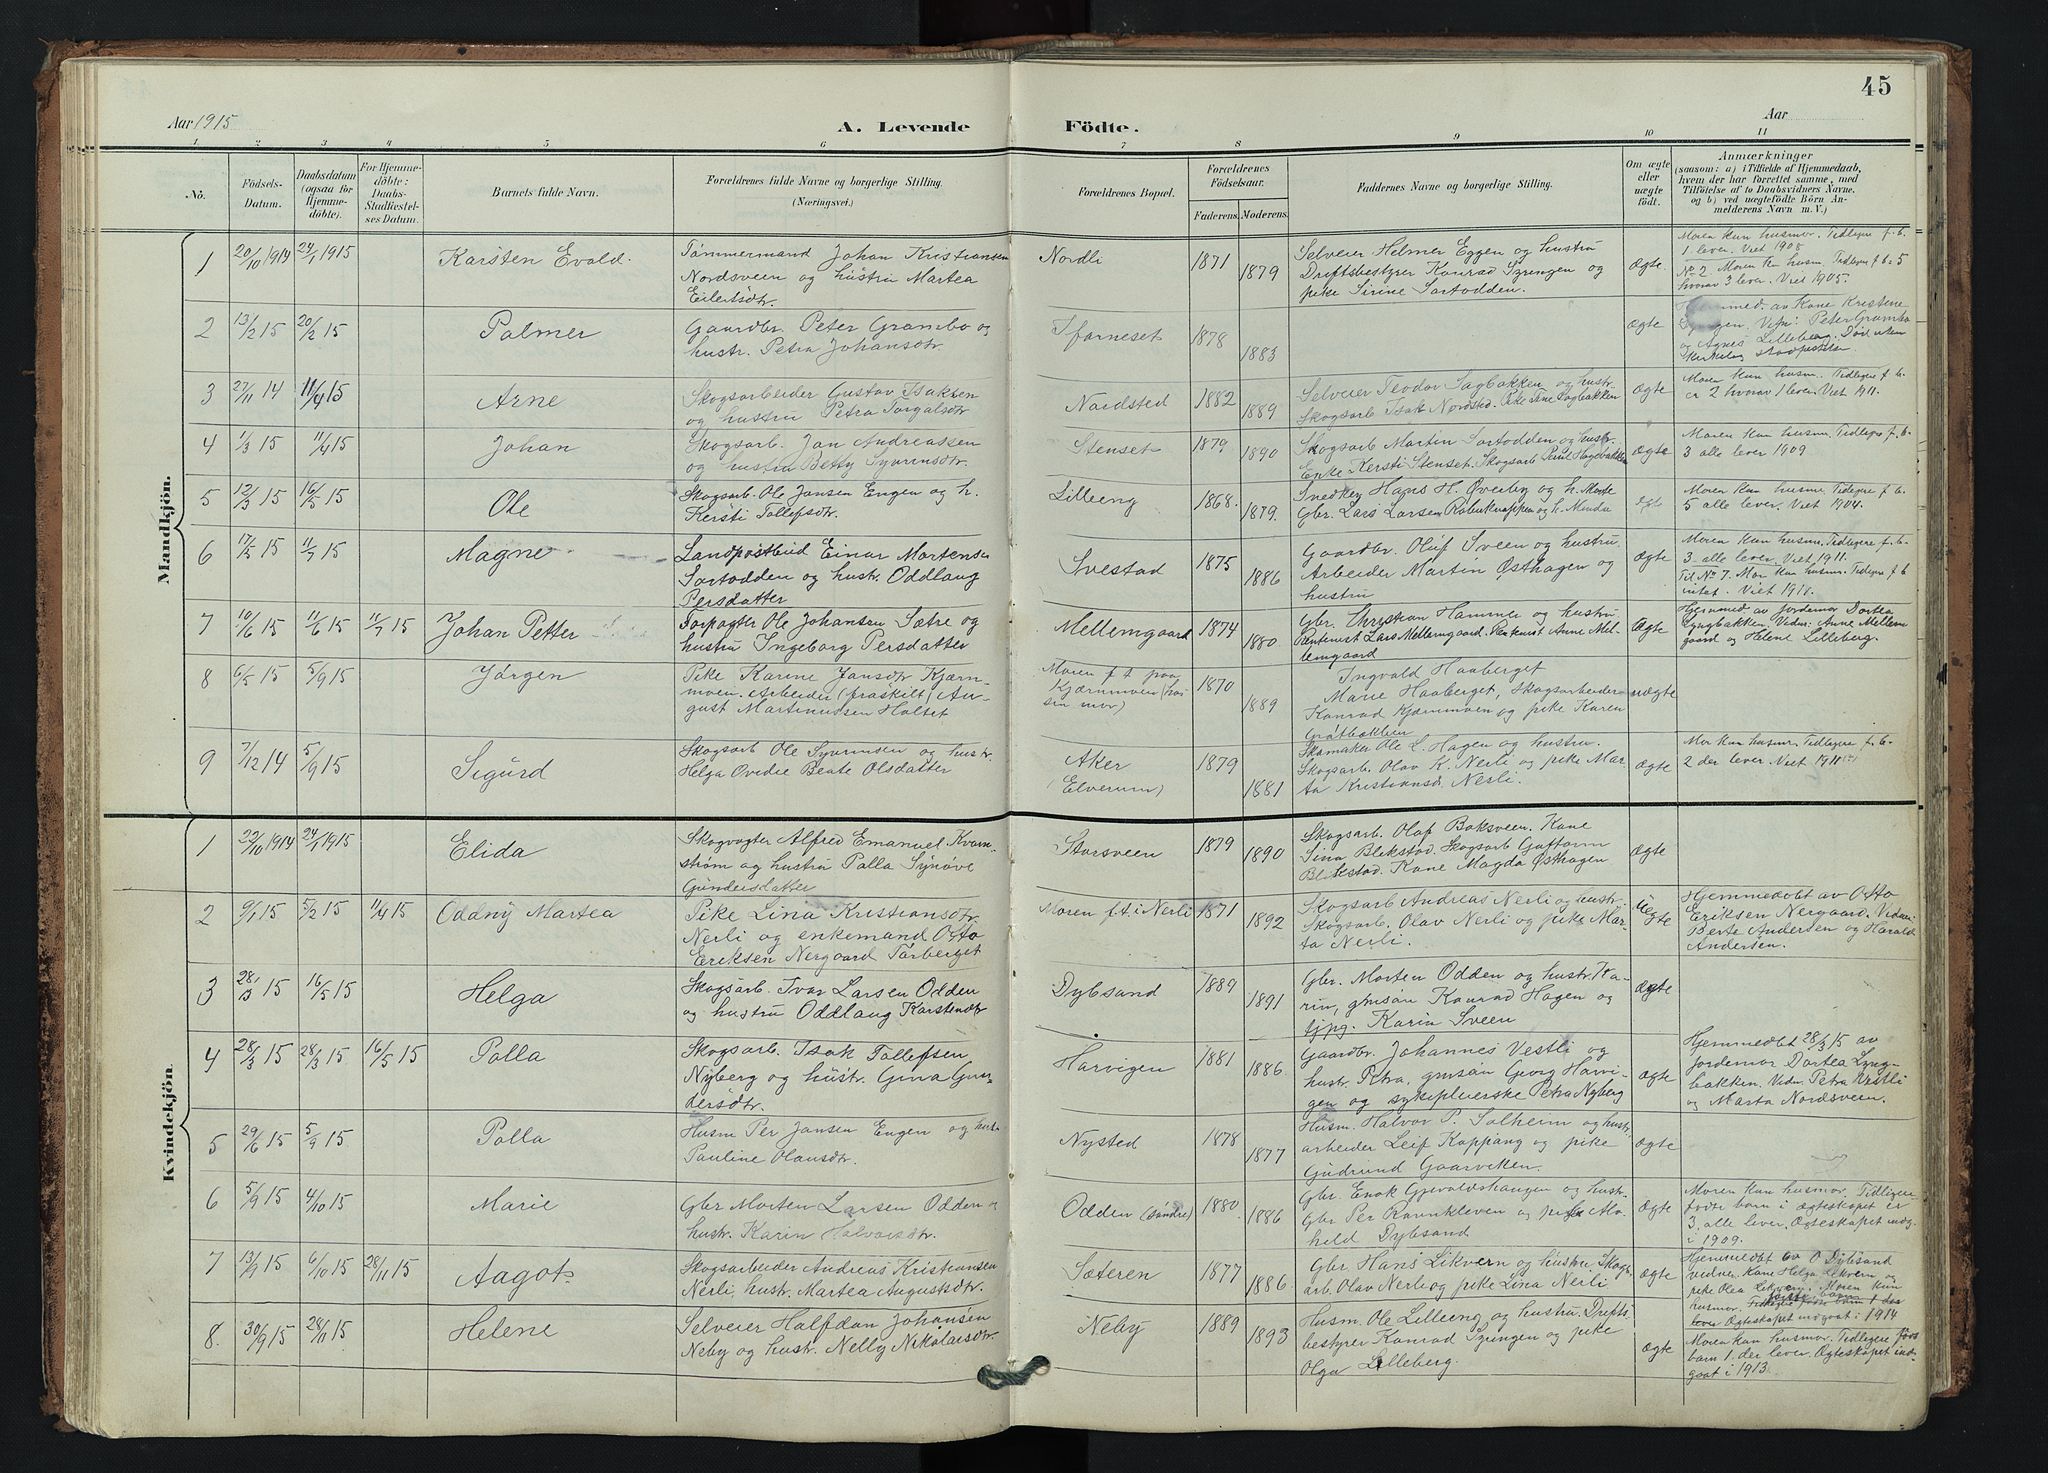 45
Aar 1915
A. Levende
Födte.
Aar
1 2 3 4 5 6 7 8 9 10 11
No.
Födsels-Datum.
Daabsdatum (ogsaa for Hjemme-döbte).
For Hjemme-döbte: Daabs-Stadfæstel-ses Datum.
Barnets fulde Navn.
Forældrenes fulde Navne og borgerlige Stilling.
(Næringsvei.)
Forældrenes Bopæl.
Forældrenes Födselsaar.
Faderens. Moderens.
Faddernes Navne og borgerlige Stilling.
Om ægte eller uægte födt.
Anmærkninger
(saasom: a) i Tilfælde af Hjemmedaab,
hvem der har forrettet samme, med
Tilföielse af to Daabsvidners Navne.
og b) ved uægtefödte Börn An-
melderens Navn m. V.)
Mandkjön.
1 20/10 1914 24/1 1915 Karsten Evald.
Tømmermand Johan Kristiansen
Nordsveen og hustru Martea
Eilertsdtr.
Nordli 1871 1879
Selveier Helmer Eggen og hustru
Driftsbestyrer Konrad Izringen og
pike Sirine Sortodden.
Ægte.
Moren kun husmor. Tidligere f. b.
1 lever. Viet 1908
No 2. Moren kun husmor. Tidligere f. b. 5
hvorav 3 lever. Viet 1905.
2 13/2 15 20/2 15 Palmer
Gaardbr. Peter Grambo og
hustr. Petra Johansdtr.
1878 1883
Ægte
av Kone Kristene
Peter Grambo
og Agnes Lilleberg. Død uten
3 27/11 14 11/4 15 Arne
Skogsarbeider Gustav Isaksen
og hustru Petra Torgalsdtr
Nordsted 1882 1889
Selveier Teodor Sagbakken og hustr.
Skogsarb Isak Nordsted. Pike Tine Sagbakken
Ægte
Moren kun husm. Tidligere f. b.
er 2 hvorav 1 lever. Viet 1911.
4 1/3 15 11/4 15 Johan
Skogsarb. Jan Andreassen
og hustru Betty Syvrinsdtr.
Stenset 1879 1890
Skogsarb Martin Sortodden og hustr.
Enke Kersti Stenset. Skogsarb Paul Hagebakken
Ægte
Moren kun husmor. Tidligere f. b.
3 alle lever 1909
5 12/3 15 16/5 15 Ole
Skogsarb. Ole Jansen Engen og h.
Kersti Tollefsdtr.
Lilleeng 1868. 1879.
Snedker Hans H. Øverby og h. Marte
Gbr. Lars Larsen Rabenknappen og h. Minda
Ægte
Moren kun husmor. Tidligere f. b.
5 alle lever. Viet 1904.
6 17/5 15 11/7 15 Magne
Landpostbud Einar Martensen
Sortodden og hustr. Oddlaug
Persdatter
Svestad 1875 1886
Gaardbr. Oluf Sveen og hustru.
Arbeider Martin Østhagen og
hustru
Ægte
Moren kun husmor. Tidligere f. b.
3. alle lever. Viet 1911.
Til No 7. Mor kun husmor. Tidligere f. b
intet. Viet 1911.
7 10/6 15 11/6 15 11/7 15 Johan Petter
Forpagter Ole Johansen Sætre og
hustru Ingeborg Persdatter
Mellemgaard 1874 1880
Gbr. Christian Hammer og hustru
Rentenist Lars Mellemgaard. Rentenist Anne Mel-
lemgaard
Ægte
Hjemmed. av Jordemor Dortea
Lyngbakken. Vidn: Anne Mellem
gaard og Helene Lilleberg.
8 6/5 15 5/9 15 Jørgen
Pike Karine Jansdtr Kjærn-
moen. Arbeider (fraskilt) Au-
gust Martinussen Holtet
Moren f. t. paa
Kjærnmoen (hos
sin mor)
1870 1889
Ingvald Haaberget
Marie Haaberget, Skogsarbeider
Konrad Kjærnmoen og pike Karen
Graatbakken
uægte
9 7/12 14 5/9 15 Sigurd
Skogsarb Ole Syvrinsen og hustr.
Helga Ovidie Beate Olsdatter
Aker
(Elverum)
1879 1881
Skomaker Ole L. Hagen og hustru.
Skogsarb. Olav K. Nerli og pike Mar-
ta Kristiansd. Nerli.
Ægte
Mor kun husmr. Tidligere f. b.
2 der lever. Viet 1911
Kvindekjön.
1 22/10 1914 24/1 1915 Elida
Skogvogter Alfred Emanuel Kvarn-
strøm og hustru Palla Synøve
Gundersdatter
Storsveen 1879 1890
Skogsarb. Olaf Boksveen. Kone
Sina Blekstad. Skogsarb Guttorm
Blekstad. Kone Magda Østhagen
Ægte
2 9/1 15 5/2 15 11/4 15 Oddny Martea
Pike Lina Kristiansdtr.
Nerli og enkemand Otto
Eriksen Nergaard Torberget
Moren f. t. i Nerli 1871 1892
Skogsarb Andreas Nerli og hustr.
Skogsarb. Olav Nerli og pike Mar-
ta Nerli.
Uegte
Hjemmedøbt av Otto
Eriksen Nergaard. Vidner:
Berte Andersen og Harald
Andersen.
3 28/13 15 16/5 15 Helga
Skogsarb. Ivar Larsen Odden
og hustru Oddlaug Karstensdtr
Dybsand 1889 1891
Gbr. Morten Odden og hustr. Ka-
rin, gmsøn Konrad Hagen og
tjpg. Karin Sveen
ægte
4 28/3 15 28/3 15 16/5 15 Palla
Skogsarb. Isak Tollefsen
Nyberg og hustr. Gina Gun-
dersdtr.
Harvigen 1881 1886.
Gaardbr. Johannes Vestli og
hustr. Petra, gmsøn Georg Harvi-
gen og sykepleierske Petra Nyberg
ægte
Hjemmedøbt 28/3 15 av
Jordemor Dortea Lyng-
bakken. Vidn. Petra Vestli
og Marta Nordsveen.
5 29/6 15 5/9 15 Palla
Husm Per Jansen Engen og hust
Pauline Olausdtr.
Nysted 1878 1877
Husm. Halvor P. Solheim og hustr.
arbeider Leif Koppang og pike
Gudrund Gaarviken.
Ægte
6 5/9 15 4/10 15 Marie
Gbr Morten Larsen Odden og
hustr. Karin Halvorsdtr.
Odden (søndre) 1880. 1886
Gbr. Enok Gjevaldshaugen og hustr.
Gbr Per Ravnkleven og pike Ma-
hild Dybsand
Ægte
Moren kun husmor. Tidligere
fødte barn i ægteskapet er
3, alle lever. Ægteskapet indg.
i 1909.
7 13/9 15 6/10 15 28/11 15 Aagot.
Skogsarbeider Andreas Kristiansen
Nerli, hustr. Martea Augustsdtr.
Sæteren 1877 1886.
Gbr Hans Likvern og hustru. Skogs-
arb. Olav Nerli og pike Lina Nerli
ægte
Hjemmedøbt av O Dybsand
vidner. Kone Helga Likvern og
pike Olea Likvern. Moren kun
husmor. Tidligere fødte barn 1 der
lever Ægteskapet indgaat i 1914
8. 30/9 15 28/11 15 Helene
Selveier Halfdan Johansen
Neby og hustr. Nelly Nikolaisdtr
Neby 1889 1893
Husm. Ole Lilleeng og hustru. Drifts-
bestyrer Konrad Izringen og pike
Olga Lilleberg.
ægte
Moren kun husmor. Tidligere føds
barn 1. der lever. Ægteskapet ind-
gaat i 1913.